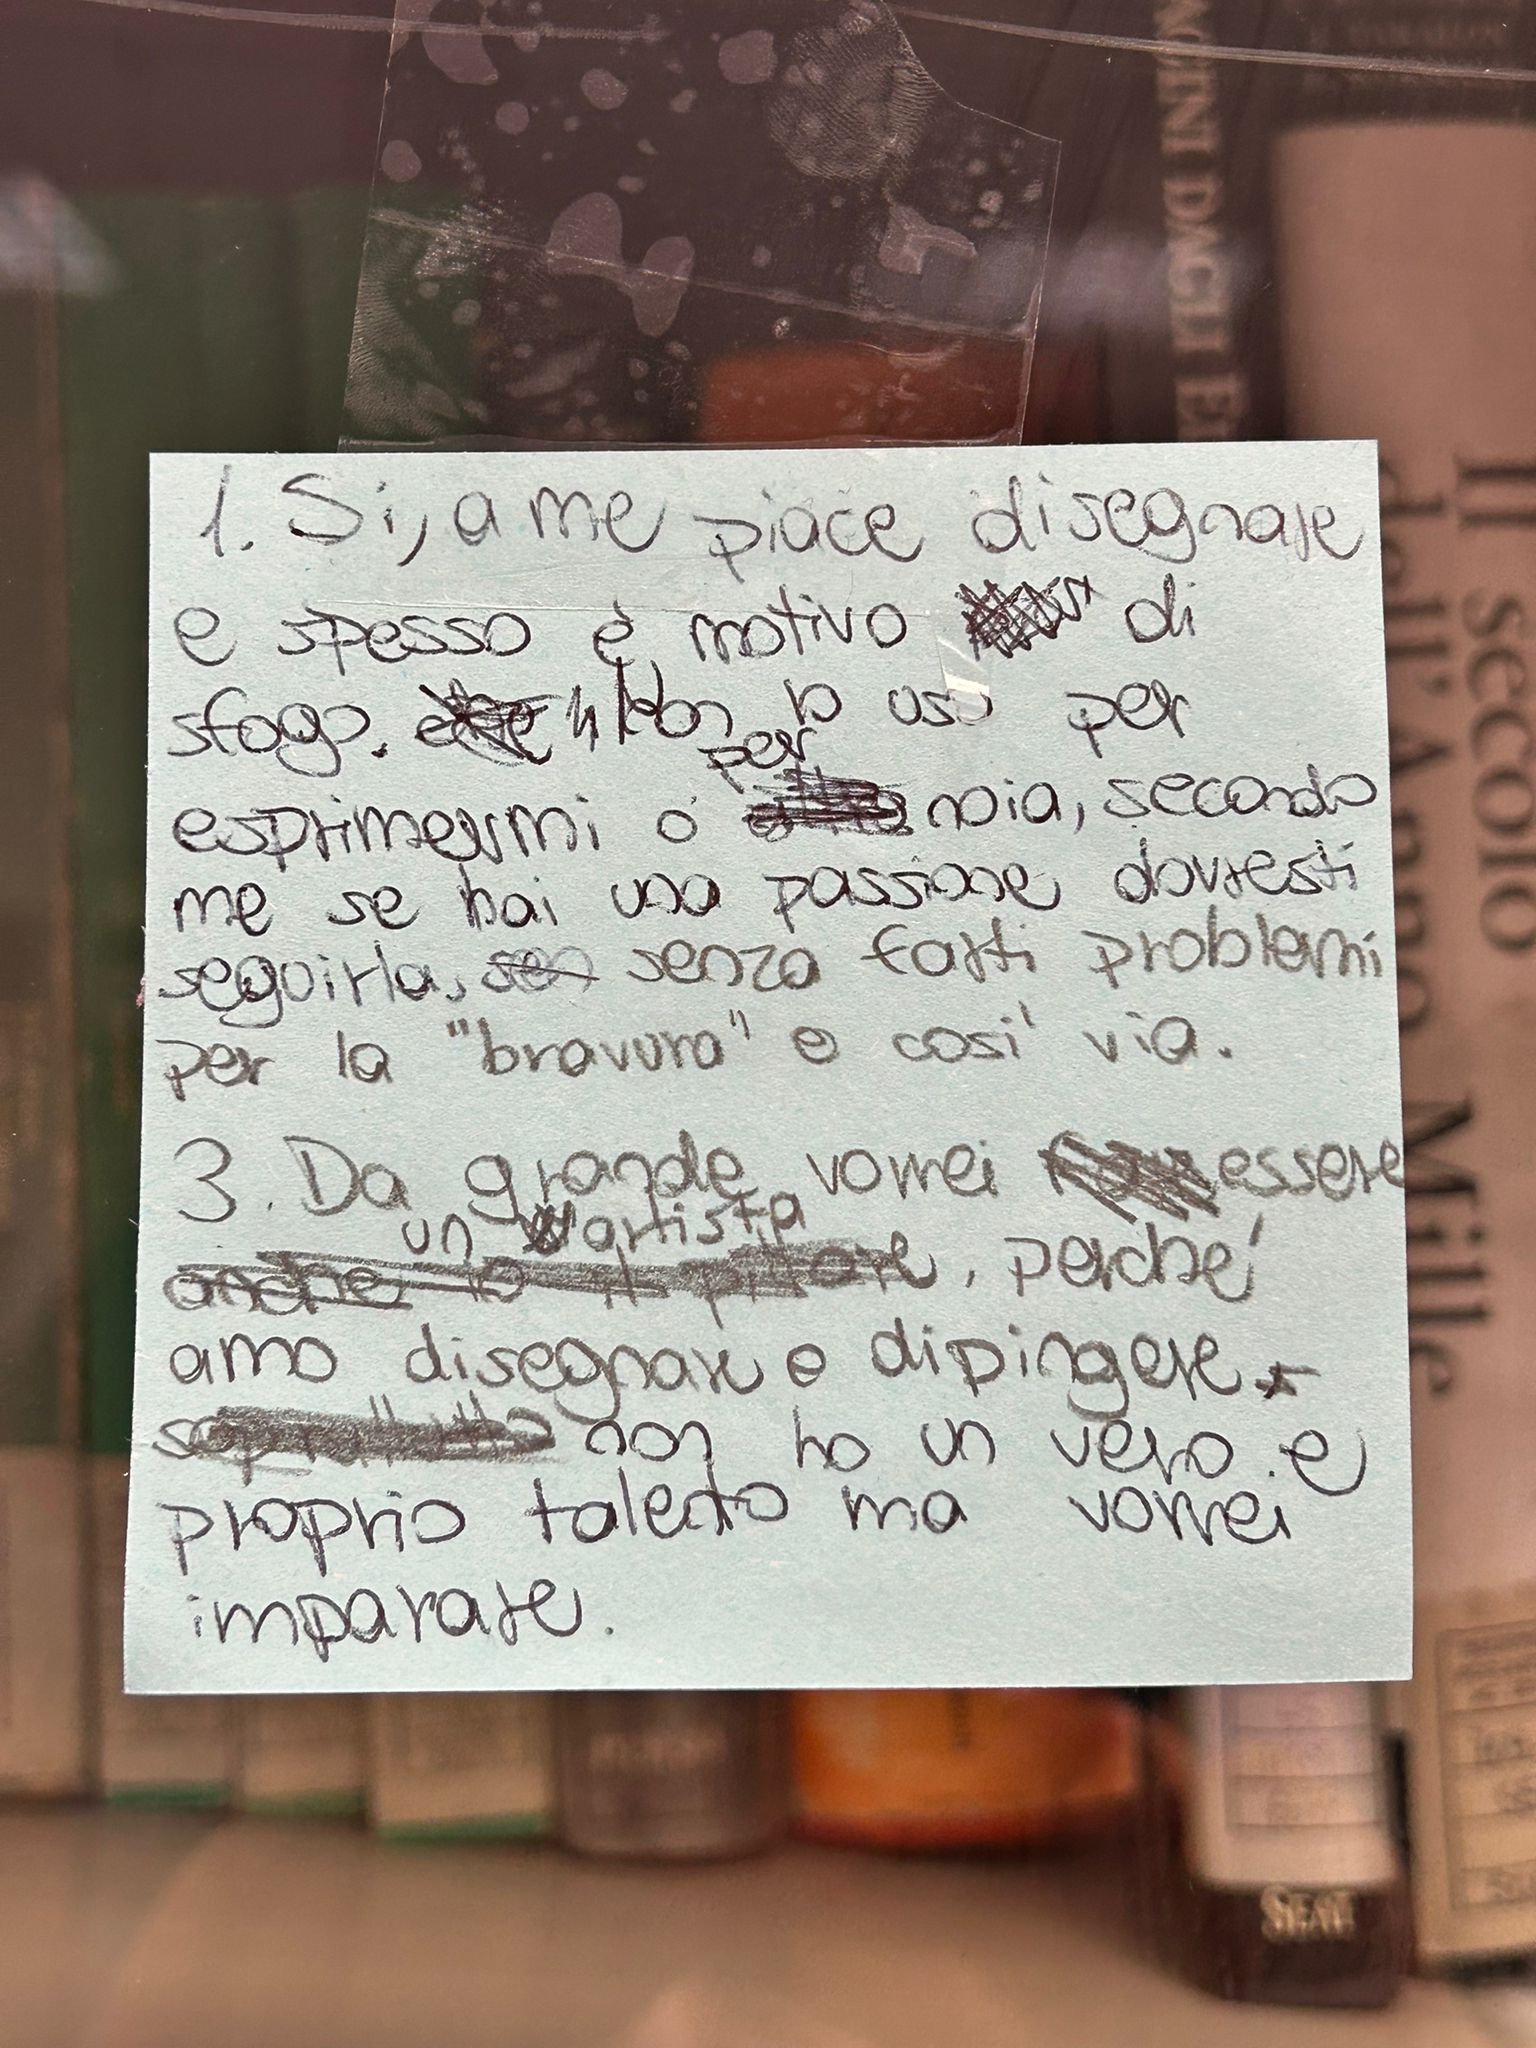 1. Si, a me piace disegnare
e spesso è motivo di
sfogo. Non lo uso per
esprimermi o per noia, secondo
me se hai una passione dovresti
seguirla, senza farti problemi
per la "bravura" e cosi' via.
3. Da grande vorrei essere
un artista, perche'
amo disegnare e dipingere.
non ho un vero e
proprio talento ma vorrei
imparare.
Il secolo
dell'Anno Mille